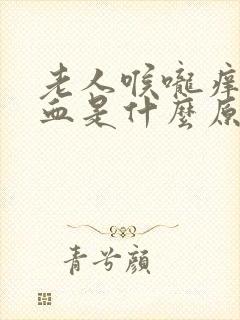 老人喉嚨痒
血是什麼原
青兮顏